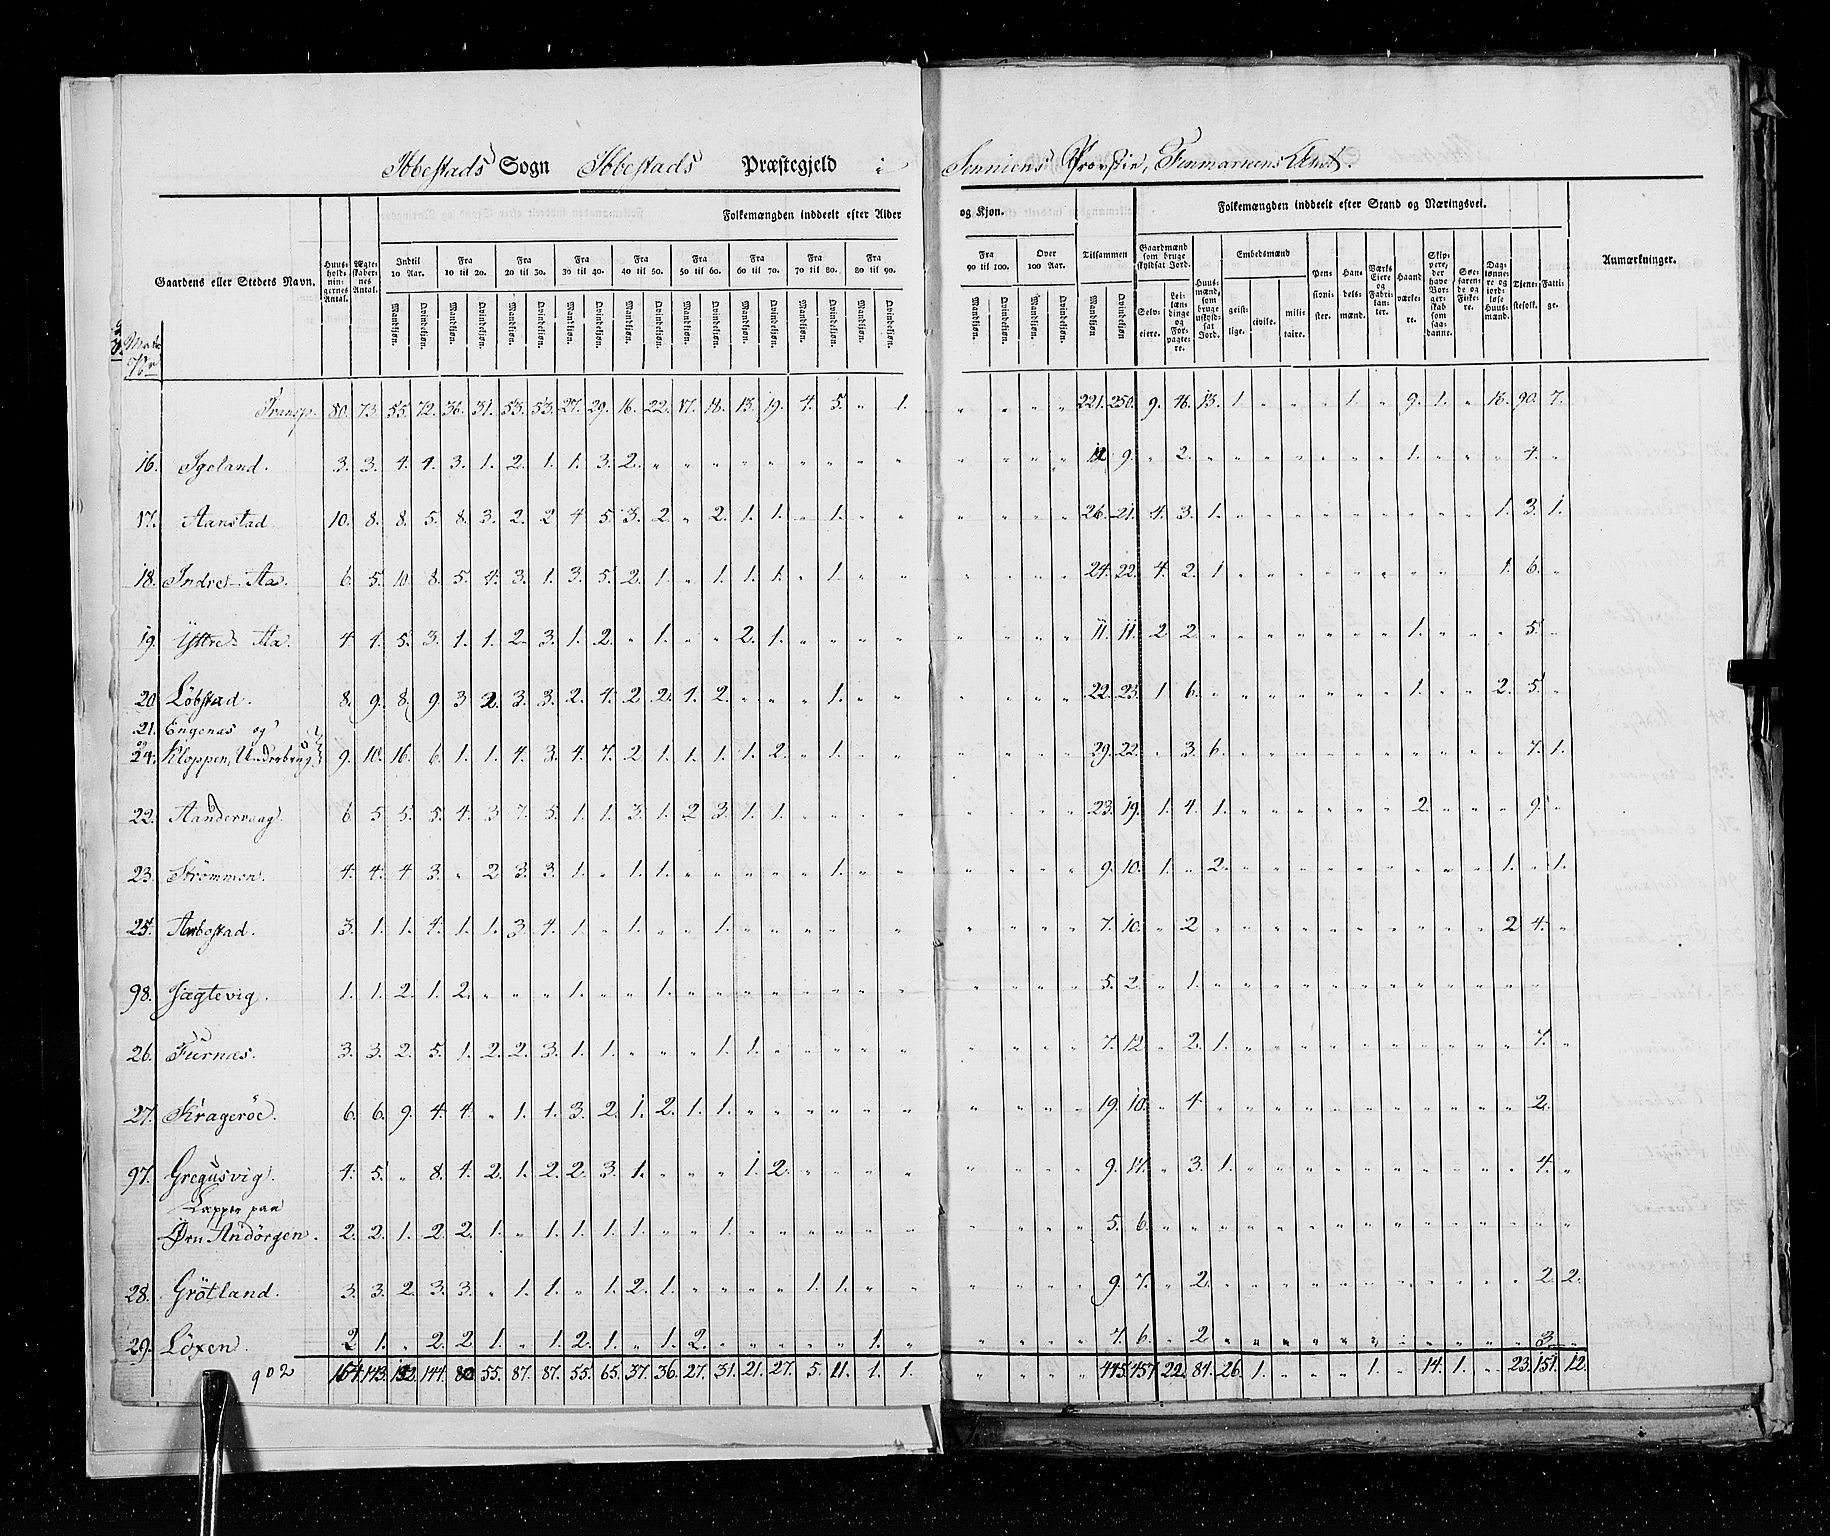 Ibbestads Sogn Ibbestads Præstegjeld i Senniens Provstie, Finmarkens Amt.
Gaardens eller Steders Navn. Huusholdningernes Antal. Ægteskabernes Antal. Folkemængden inddeelt efter Alder og Kjøn. Tilsammen Folkemængden inddeelt efter Stand og Næringsvei. Anmærkninger.
Indtil 10 Aar. Fra 10 til 20. Fra 20 til 30. Fra 30 til 40. Fra 40 til 50. Fra 50 til 60. Fra 60 til 70. Fra 70 til 80. Fra 80 til 90. Fra 90 til 100. Over 100 Aar.
Mandkjøn. Qvindekjøn. Mandkjøn. Qvindekjøn. Mandkjøn. Qvindekjøn. Mandkjøn. Qvindekjøn. Mandkjøn. Qvindekjøn. Mandkjøn. Qvindekjøn. Mandkjøn. Qvindekjøn. Mandkjøn. Qvindekjøn. Mandkjøn. Qvindekjøn. Mandkjøn. Qvindekjøn. Mandkjøn. Qvindekjøn. Mandkjøn Qvindekjøn
Gaardmænd som bruge skyldsat Jord. Selveiere. Leilændinge og Forpagtere. Huusmænd, som bruge uskyldsat Jord. Embedsmænd geistlige. civile. militaire. Pensionister. Handelsmænd. Værks Eiere og Fabrikanter. Haandværkere. Skippere, der have Borgerskab som saadanne. Søefarende og Fiskere. Daglønnere og jordløse Huusmænd. Tjenestefolk. Fattige.
Transp. 80. 73. 55. 72. 36. 31. 53. 53. 27. 29. 16. 22. 17. 18. 13. 19. 4. 5. " 1. " " " " 221. 250. 9. 46. 13. 1 " " " 1. " 9. 1. " 16. 90. 7.
16. Igeland. 3. 3. 4. 4. 3. 1. 2. 1. 1. 3. 2. " " " " " " " " " " " " " 12 9. " 2. " " " " " " " 1. " " " 4. "
17. Aanstad 10. 8. 8. 5. 8. 3. 2. 2 4. 5. 3. 2. " 2. 1. 1. " 1. " " " " " " 26. 21. 4. 3. 1. " " " " " " " " " 1. 3. 1.
18. Indre Aa. 6. 5. 10. 8. 5. 4. 3. 1. 3. 5. 2. 1. " 1. 1. 1. " 1. " " " " " " 24. 22. 4. 2. 1 " " " " " " " " " 1. 6. "
19. Ÿttre Aa. 4. 4. 5. 3. 1. 1. 2. 3. 1. 2. " 1. " " 2. 1. " " " " " " " " 11. 11. 2 2. " " " " " " " 1. " " " 5. "
20 Löbstad. 8. 9. 8. 9. 3 2. 3. 3. 2. 4. 2. 2. 4. 2. " " " 1. " " " " " " 22. 23. 1 6. " " " " " " " 1. " " 2. 5. "
21. Engenæs og
24. Kloppen, Underbrug 9. 10. 16. 6. 1. 1. 4. 3. 4. 7. 2. 1. 1. 1. 1. 2. " 1. " " " " " " 29. 22. " 3. 6. " " " " " " " " " " 7. 1.
22. Aandervaag. 6. 5 5. 5. 4. 3 7. 5. 1. 1. 3. 1. 2 3. 1. 1. " " " " " " " " 23. 19. 1. 4. 1. " " " " " " 2. " " " 9. "
23. Strömmen. 4. 4. 4 3. " 2 3. 3. 1. " 1. 1. " " " " " 1. " " " " " " 9. 10. 1. " 2. " " " " " " " " " 1. " 1.
25. Aarbostad. 3. 1. 1. 4. 1. 1. 3 4. 1. " 1. " " 1. " " " " " " " " " " 7. 10. " 2 " " " " " " " " " " 2 4. "
98. Jægtevig. 1. 1. 2. 1. 2. " " " 1. " " 1. " " " " " " " " " " " " 5. 2. " 1. " " " " " " " " " " " " "
26. Furnæs. 3. 3. 2. 5. 1. 2. 2. 3. 1. 1. " " " 1. 1. " " " " " " " " " 7. 12. " 2. 1. " " " " " " " " " " 7. "
27. Krageröe. 6. 6. 9. 4. 4. " 1. 1. 3. 2. 1. 2. 1. 1. " " " " " " " " " " 19. 10. " 4. " " " " " " " " " " " 2. "
97. Gregusvig. 4. 5. " 8. 4. 2. 1. 2. 2. 3. 1. " " " 1. 2. " " " " " " " " 9. 17. " 3. 1. " " " " " " " " " " 4. "
Lapper paa
Øen Andörgen. 2. 2. 1. 2. 2. 1. " 1. 1. 1. 1. " " 1. " " " " " " " " " " 5. 6. " " " " " " " " " " " " " " "
28. Grötland. 3. 3. 2. 3. 3. " 1. 1. " 1. 2. 1. " " " " 1. 1. " " " " " " 9. 7. " 2. " " " " " " " " " " " 2. 2.
29. Löxen. 2 1. " 2. 2. 1. " 1. 2. 1. " 1. 2. " " " " " 1. " " " " " 7. 6. " 2. " " " " " " " " " " " 3. "
902 154. 143. 132. 144. 80 55. 87. 87. 55. 65. 37. 36. 27. 31. 21. 27. 5. 11. 1. 1. " " " " 445. 457. 22. 84. 26. 1. " " " 1. " 14. 1. " 23. 151. 12.